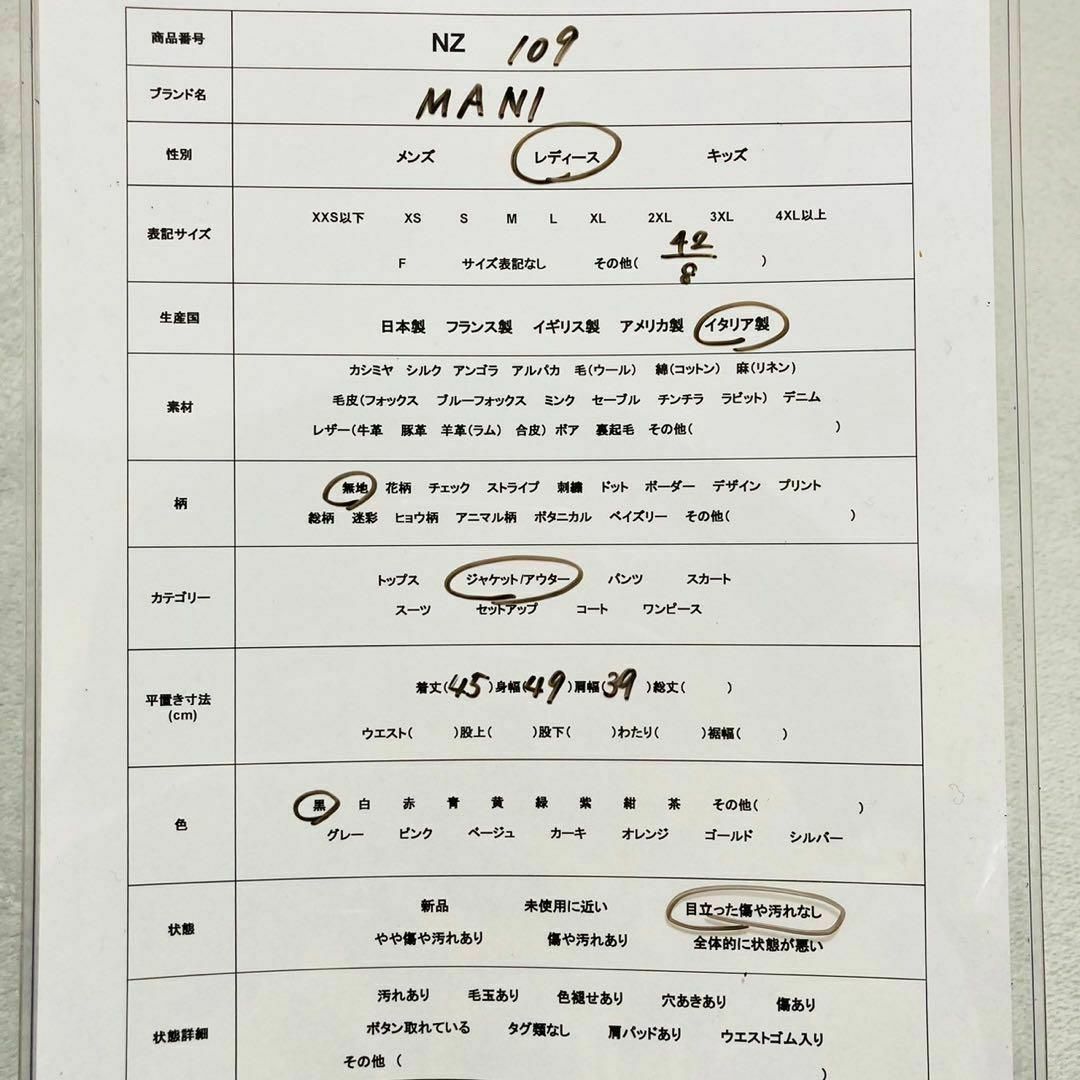 商品番号 NZ 109
ブランド名 MANI
性別 メンズ レディース キッズ
XXS以下 XS S M L XL 2XL 3XL 4XL以上
表記サイズ
F サイズ表記なし その他( 42/8 )
生産国 日本製 フランス製 イギリス製 アメリカ製 イタリア製
カシミヤ シルク アンゴラ アルパカ 毛(ウール) 綿(コットン) 麻(リネン)
素材 毛皮(フォックス ブルーフォックス ミンク セーブル チンチラ ラビット) デニム
レザー(牛革 豚革 羊革(ラム) 合皮) ボア 裏起毛 その他( )
無地 花柄 チェック ストライプ 刺繍 ドット ボーダー デザイン プリント
柄
総柄 迷彩 ヒョウ柄 アニマル柄 ボタニカル ペイズリー その他( )
トップス ジャケット/アウター パンツ スカート
カテゴリー
スーツ セットアップ コート ワンピース
着丈(45)身幅(49)肩幅(39)総丈( )
平置き寸法
(cm)
ウエスト( )股上( )股下( )わたり( )裾幅( )
黒 白 赤 青 黄 緑 紫 紺 茶 その他( )
色
グレー ピンク ベージュ カーキ オレンジ ゴールド シルバー
新品 未使用に近い 目立った傷や汚れなし
状態
やや傷や汚れあり 傷や汚れあり 全体的に状態が悪い
汚れあり 毛玉あり 色褪せあり 穴あきあり 傷あり
状態詳細 ボタン取れている タグ類なし 肩パッドあり ウエストゴム入り
その他 ( )